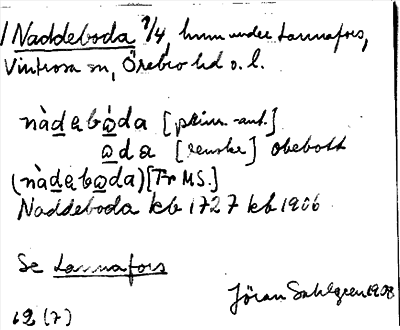 / Naddeboda 1/4 hmn under Lannafors,
Vintrosa sn, Örebro hd o. l.
nàdabòda [prim.-ant.]
òda [svenske] obebott
(nàdabòda) [Fr MS.]
Naddeboda kb 1727 kb 1906
Se Lannafors
Jöran Sahlgren 1908
12 (7)